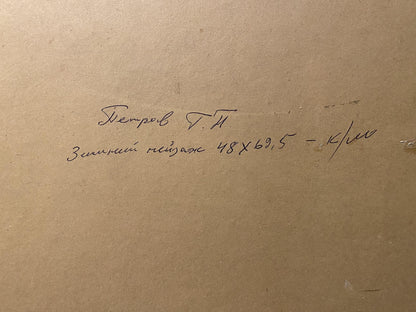 Петров Г.П
Зимний пейзаж 48х69,5 - к/м